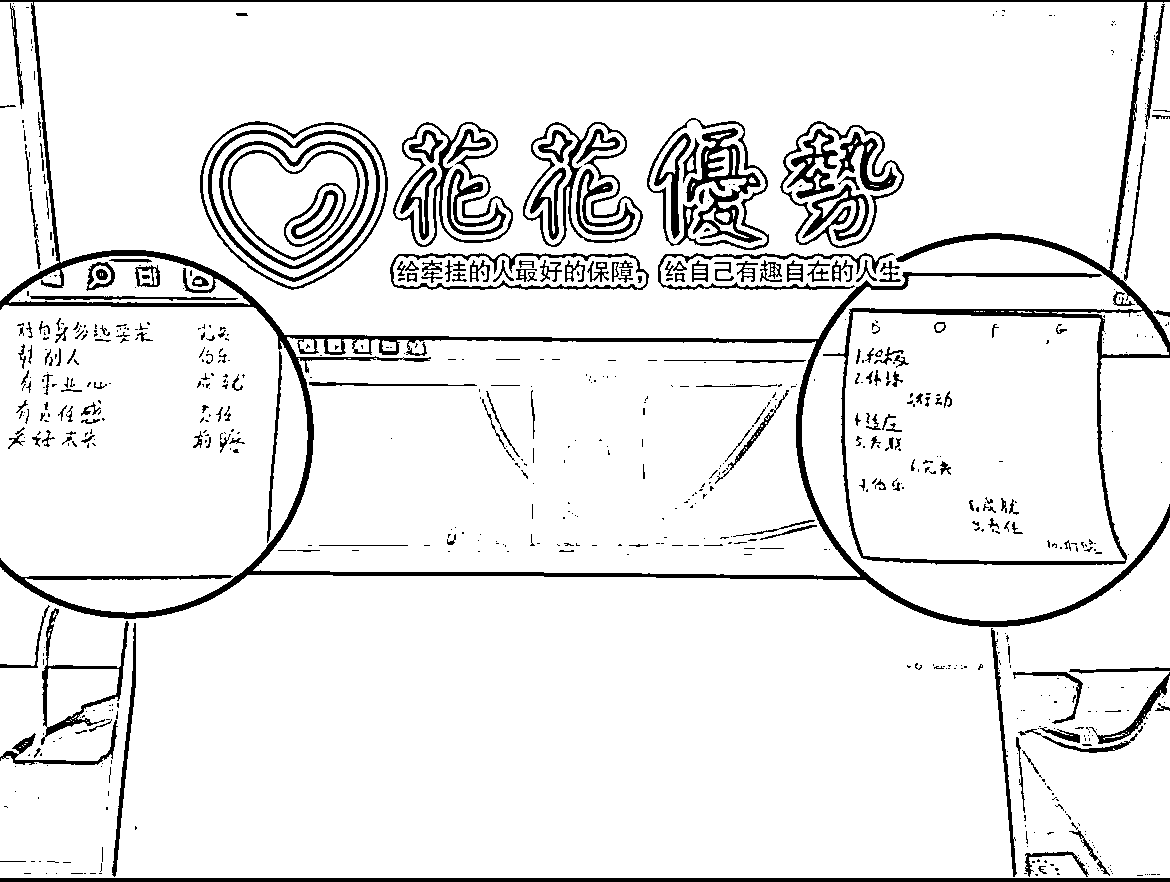 花花優勢
给牵挂的人最好的保障，给自己有趣自在的人生
对自身多他要求 完美
帮别人 伯乐
有事业心 成就
有责任感 责任
看好未来 前瞻
B O F G
1.积极
2.体谅
3.行动
4.适应
5.关联
6.完美
7.伯乐
8.成就
9.责任